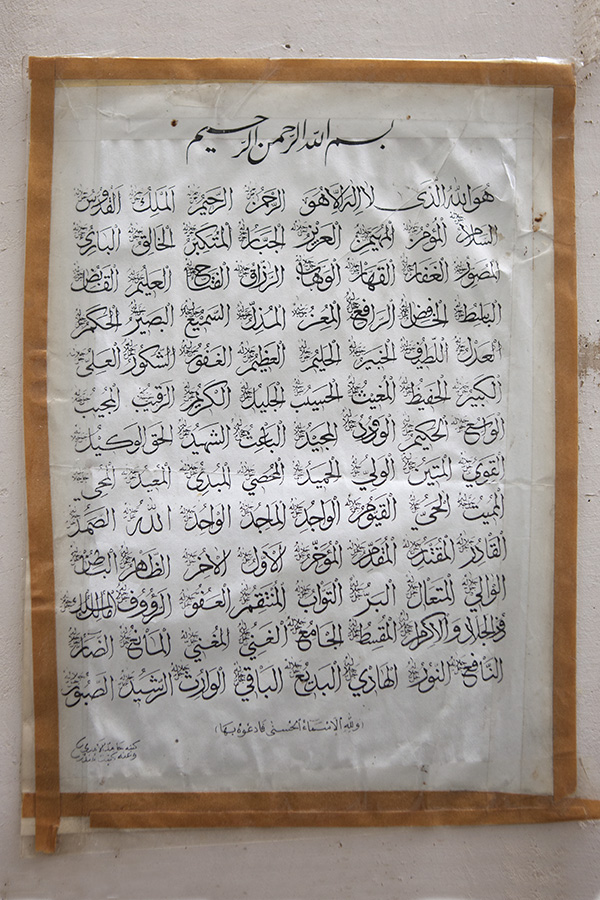 بسم الله الرحمن الرحيم
هو الله الذي لا إله إلا هو الرحمن الرحيم الملك القدوس
السلام المؤمن المهيمن العزيز الجبار المتكبر الخالق البارئ
المصور الغفار القهار الوهاب الرزاق الفتاح العليم القابض
الباسط الخافض الرافع المعز المذل السميع البصير الحكم
العدل اللطيف الخبير الحليم العظيم الغفور الشكور العلي
الكبير الحفيظ الحسيب الجليل الكريم الرقيب المجيب
الواسع الحكيم الودود المجيد الباعث الشهيد الحق الوكيل
القوي المتين الولي الحميد المحصي المبدئ المعيد المحيي
المميت الحي القيوم الواجد الماجد الواحد الله الصمد
القادر المقتدر المقدم المؤخر الأول الآخر الظاهر الباطن
الوالي المتعال البر التواب المنتقم العفو الرؤوف مالك الملك
ذو الجلال والإكرام المقسط الجامع الغني المغني المانع الضار
النافع النور الهادي البديع الباقي الوارث الرشيد الصبور
(ولله الاسماء الحسنى فادعوه بها)